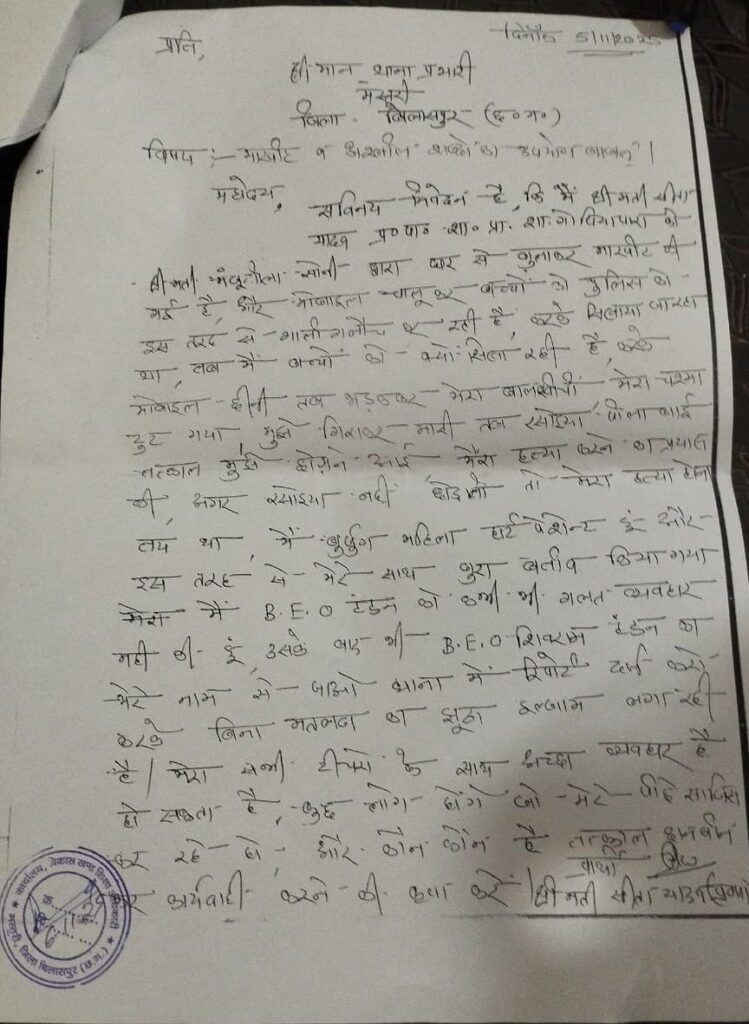 दिनाँक 5/11/2025
प्रति,
श्री मान थाना प्रभारी
मस्तुरी
जिला - बिलासपुर (छ०ग०)
विषय :- मारपीट व अश्लील शब्दों का उपयोग बाबत् ।
महोदय,
सविनय निवेदन है, कि मैं श्री मती सीता
यादव प्र० पा० शा० प्रा. शा. को
श्री मती सोनी द्वारा से बुलाकर मारपीट की
गई है, और मोबाइल चालू कर बच्चों को पुलिस को
इस तरह से गाली गलौच कर रही है, करके सिखाया जा रहा
था, तब मैं बच्चों को क्यों सिखा रही है, करके
मोबाइल छीनी तब भड़ककर मेरा बाल खीची, मेरा चश्मा
टुट गया, मुझे गिराकर मारी तब रसोइया, बाई
तत्काल मुझे छोड़ाने आई, मेरा हत्या करने का प्रयास
की, अगर रसोइया नही छोड़ाती तो मेरा हत्या होना
तय था, मैं बुर्जुग महिला हार्ट पेशेन्ट हूं और
इस तरह से मेरे साथ बुरा बर्ताव किया गया
मेरा मैं B.E.O टंडन को कभी भी गलत व्यवहार
नही की हूं, उसके बाद भी B.E.O शिवराम टंडन का
मेरे नाम से जाओ थाना में रिपोर्ट दर्ज करो
करके बिना मतलब का झूठा इल्जाम लगा रही
है। मेरा सभी टीचरो के साथ अच्छा व्यवहार है
हो सकता है, कुछ लोग होंगे जो मेरे पीछे साजिस
कर रहे हो, और कौन कौन है तत्काल छानबीन
कर कार्यवाही करने की कृपा करें। प्रार्थी
श्री मती सीता यादव
कार्यालय, विकास खण्ड शिक्षा अधिकारी
मस्तुरी, जिला बिलासपुर (छ.ग.)